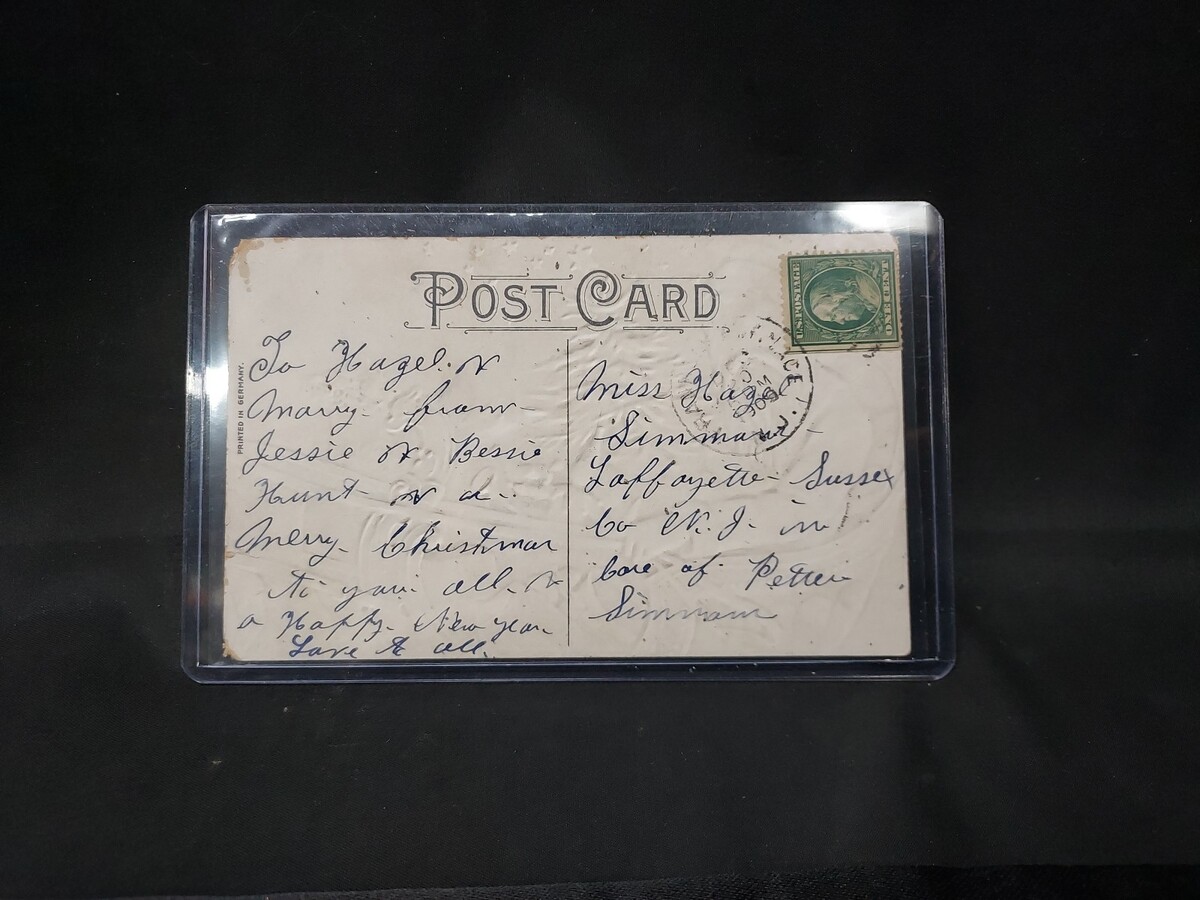 POST CARD
PRINTED IN GERMANY.
U.S. POSTAGE
ONE CENT
To Hazel. &
Marry. from
Jessie & Bessie
Hunt & a.
Merry. Christmas
to you all. &
a Happy. New year.
Love to all.
Miss Hazel
Simmons
Laffayette Sussex
Co N. J. in
Care of. Petter
Simmons